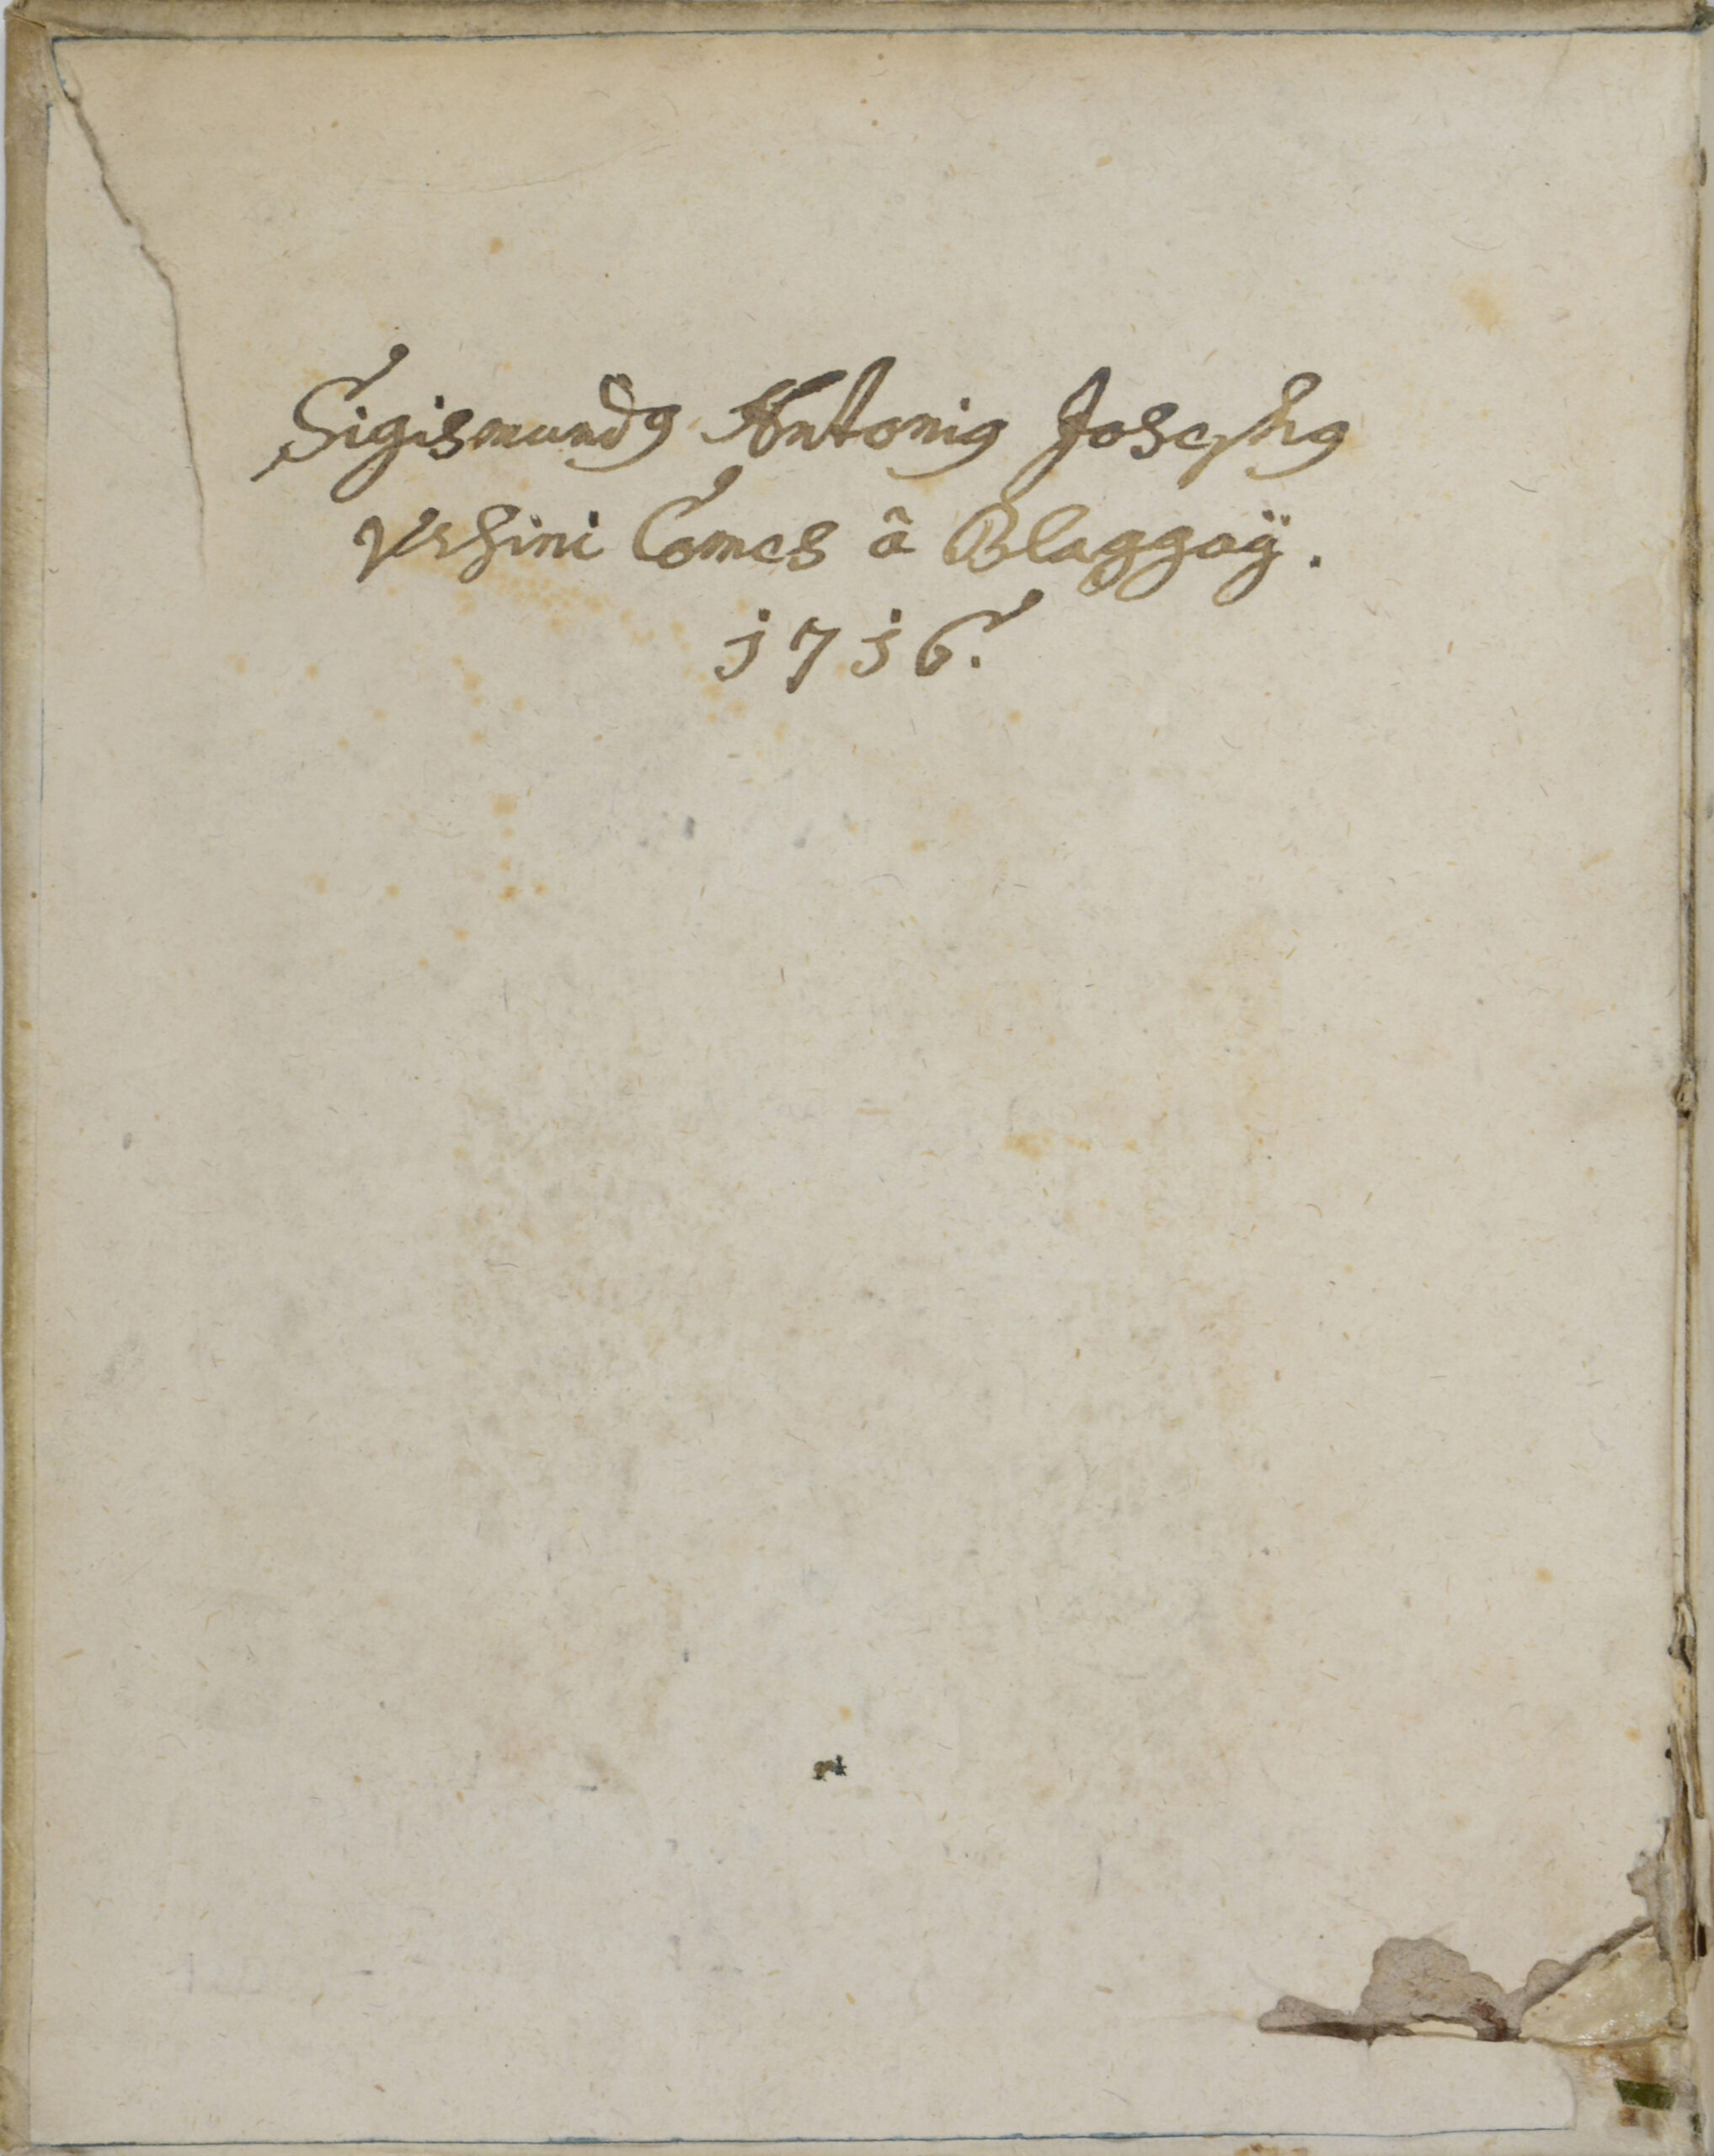 Sigismundꝰ Antoniꝰ Josephꝰ
Vrsini Comes â Blaggaÿ.
1716.